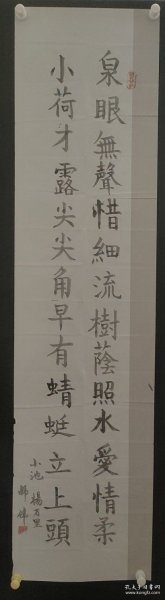 泉眼無聲惜細流樹蔭照水愛情柔
小荷才露尖尖角早有蜻蜓立上頭
小池 楊万里